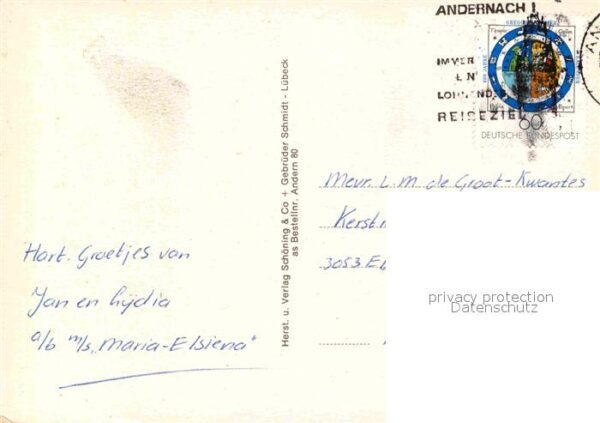 ANDERNACH!
IMMER
EIN
LOHNENDES
REISEZIEL
60
DEUTSCHE BUNDESPOST
Herst. u. Verlag Schöning & Co + Gebrüder Schmidt - Lübeck
as Bestellnr. Andern 80
Mevr. L. M. de Groot-Kwantes
3053
privacy protection
Datenschutz
Hart. Groetjes van
Jan en Lydia
a/b m/s. "Maria-Elsiena"